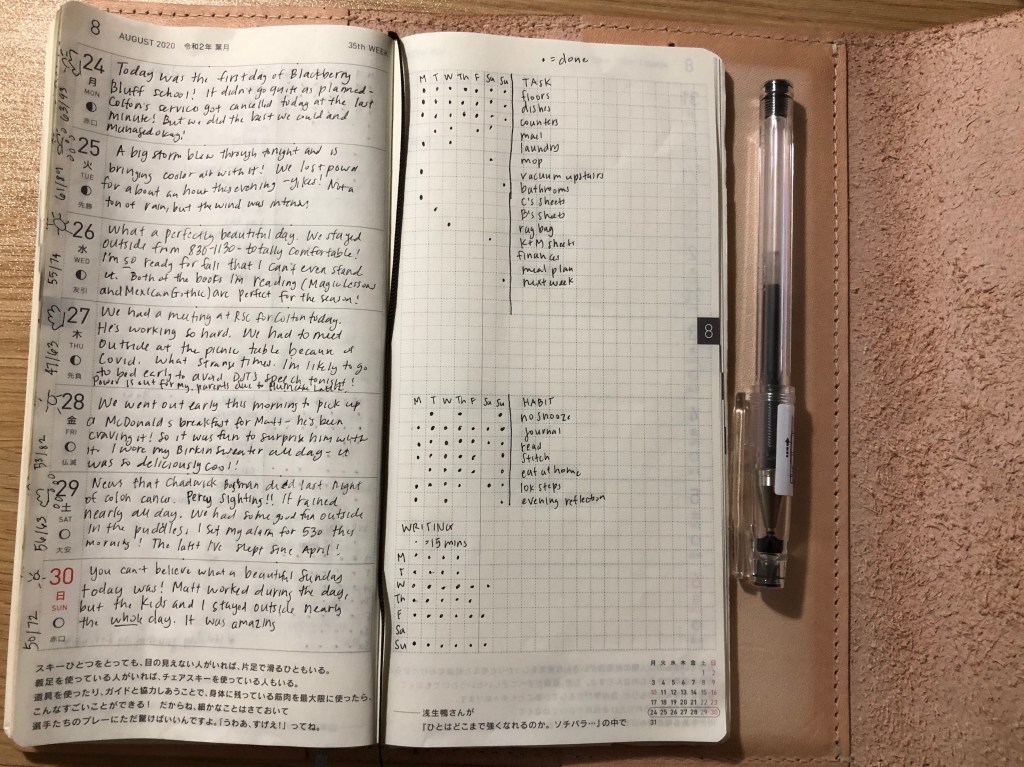 8
AUGUST 2020 令和2年 葉月
35th WEEK
24
月
MON
赤口
63/93
Today was the first day of Blackberry
Bluff school! It didn't go quite as planned-
Colton's service got cancelled today at the last
minute! But we did the best we could and
managed okay!
25
火
TUE
先勝
61/89
A big storm blew through tonight and is
bringing cooler air with it! We lost power
for about an hour this evening - yikes! Not a
ton of rain, but the wind was intense!
26
水
WED
友引
55/74
What a perfectly beautiful day. We stayed
outside from 830-1130- totally comfortable!
I'm so ready for fall that I can't even stand
it. Both of the books I'm reading (Magic Lessons
and Mexican Gothic) are perfect for the season!
27
木
THU
先負
47/63
We had a meeting at RSC for Colton today.
He's working so hard. We had to meet
outside at the picnic table because of
Covid. What strange times. I'm likely to go
to bed early to avoid DJT's speech tonight!
Power is out for my parents due to Hurricane Laura.
28
金
FRI
仏滅
55/82
We went out early this morning to pick up
a McDonald's breakfast for Matt- he's been
craving it! So it was fun to surprise him with
it. I wore my Birkin sweater all day - it
was so deliciously cool!
29
土
SAT
大安
56/63
News that Chadwick Boseman died last night
of colon cancer. Percy Sighting!! It rained
nearly all day. We had some good fun outside
in the puddles. I set my alarm for 530 this
morning! The last I've slept since April!
30
日
SUN
赤口
50/72
You can't believe what a beautiful Sunday
today was! Matt worked during the day,
but the kids and I stayed outside nearly
the whole day. It was amazing
スキーひとつをとっても、目の見えない人がいれば、片足で滑るひともいる。
義足を使っている人がいれば、チェアスキーを使っている人もいる。
道具を使ったり、ガイドと協力しあうことで、身体に残っている筋肉を最大限に使ったら、
こんなすごいことができる! だからね、細かなことはさておいて
選手たちのプレーにただ驚けばいいんですよ。「うわあ、すげえ!」ってね。
• = done
M T W Th F Sa Su TASK
floors
dishes
counters
mail
laundry
mop
vacuum upstairs
bathrooms
C's sheets
B's sheets
rug bag
K+M sheets
finances
meal plan
next week
8
M T W Th F Sa Su HABIT
no snooze
journal
read
stitch
eat at home
10k steps
evening reflection
WRITING
• = 15 mins
M
T
W
Th
F
Sa
Su
月 火 水 木 金 土 日
1 2
3 4 5 6 7 8 9
10 11 12 13 14 15 16
17 18 19 20 21 22 23
24 25 26 27 28 29 30
31
浅生鴨さんが
『ひとはどこまで強くなれるのか。ソチパラ…』の中で